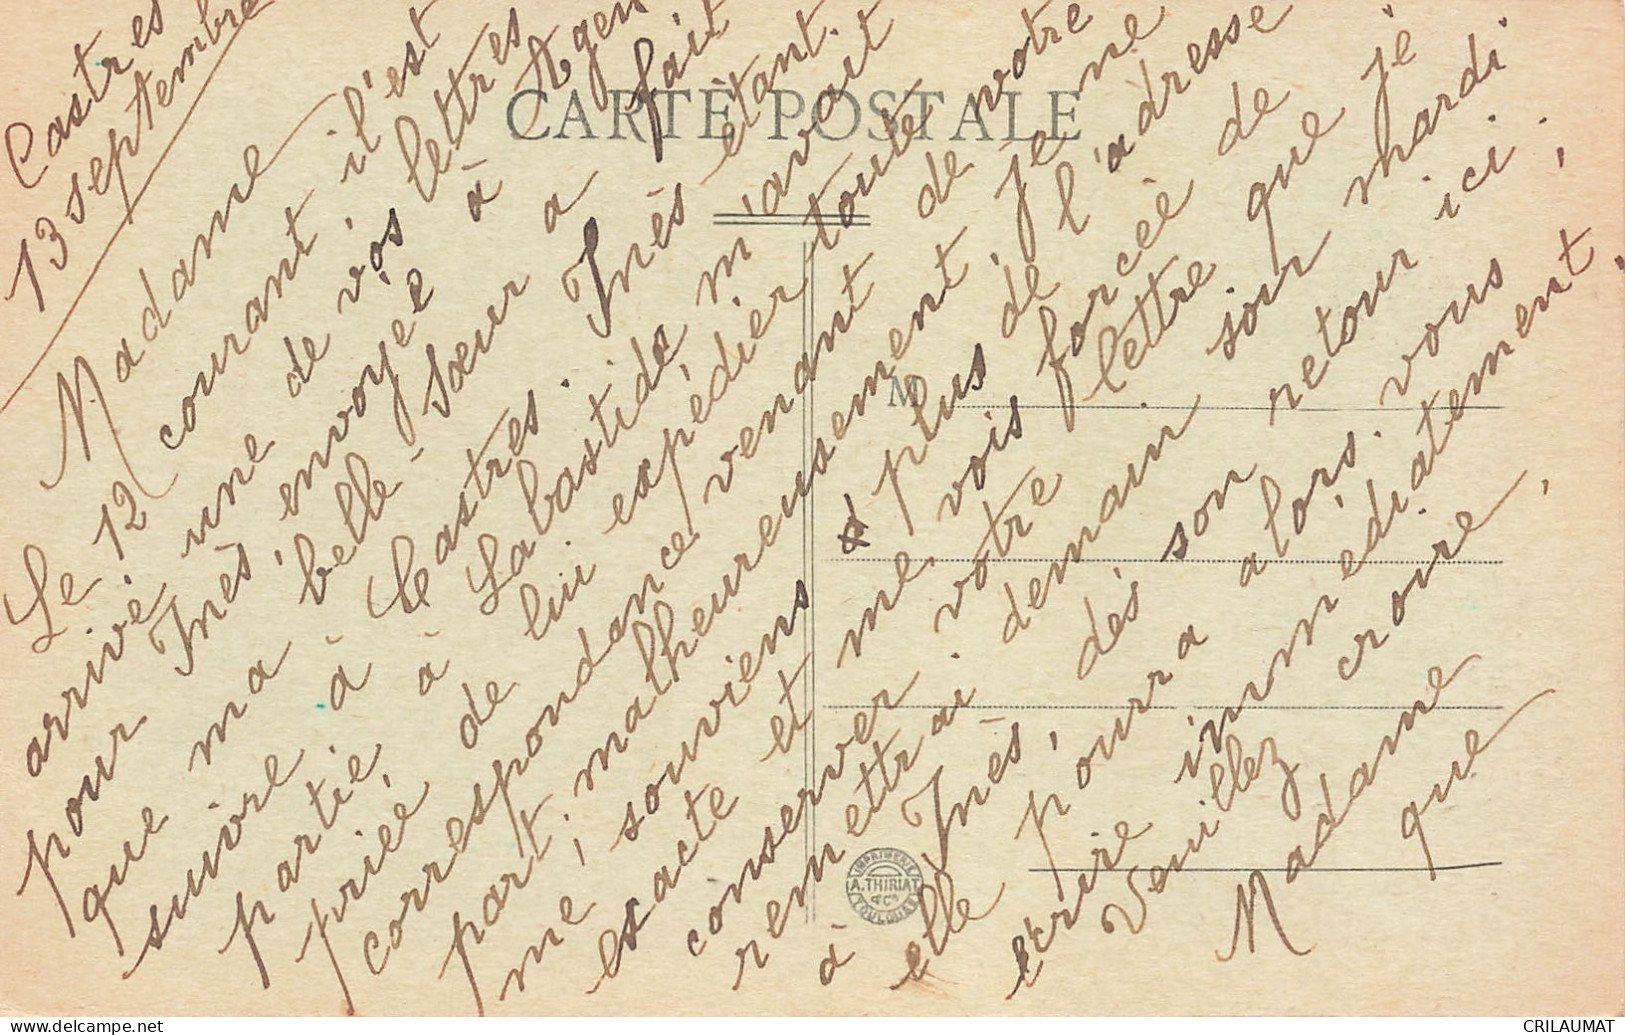 Castres
13 septembre
Madame
Le 12 courant il'est
arrivé une de vos lettres
pour Inès envoyée à Agen
que ma belle-sœur a fait
suivre à Castres. Inès étant.
partie, à Labastide m'avait
priée de lui expédier toute
correspondance venant de votre
part; malheureusement, je ne
me souviens plus de l'adresse
exacte et me vois forcée de
conserver votre lettre que je
remettrai demain soir mardi
à Inès, dès son retour ici.
elle pourra alors vous
écrire immédiatement,
Veuillez croire,
Madame
que
CARTE POSTALE
M
IMPRIMERIE
A. THIRIAT
& Cie
TOULOUSE
delcampe.net
CRILAUMAT